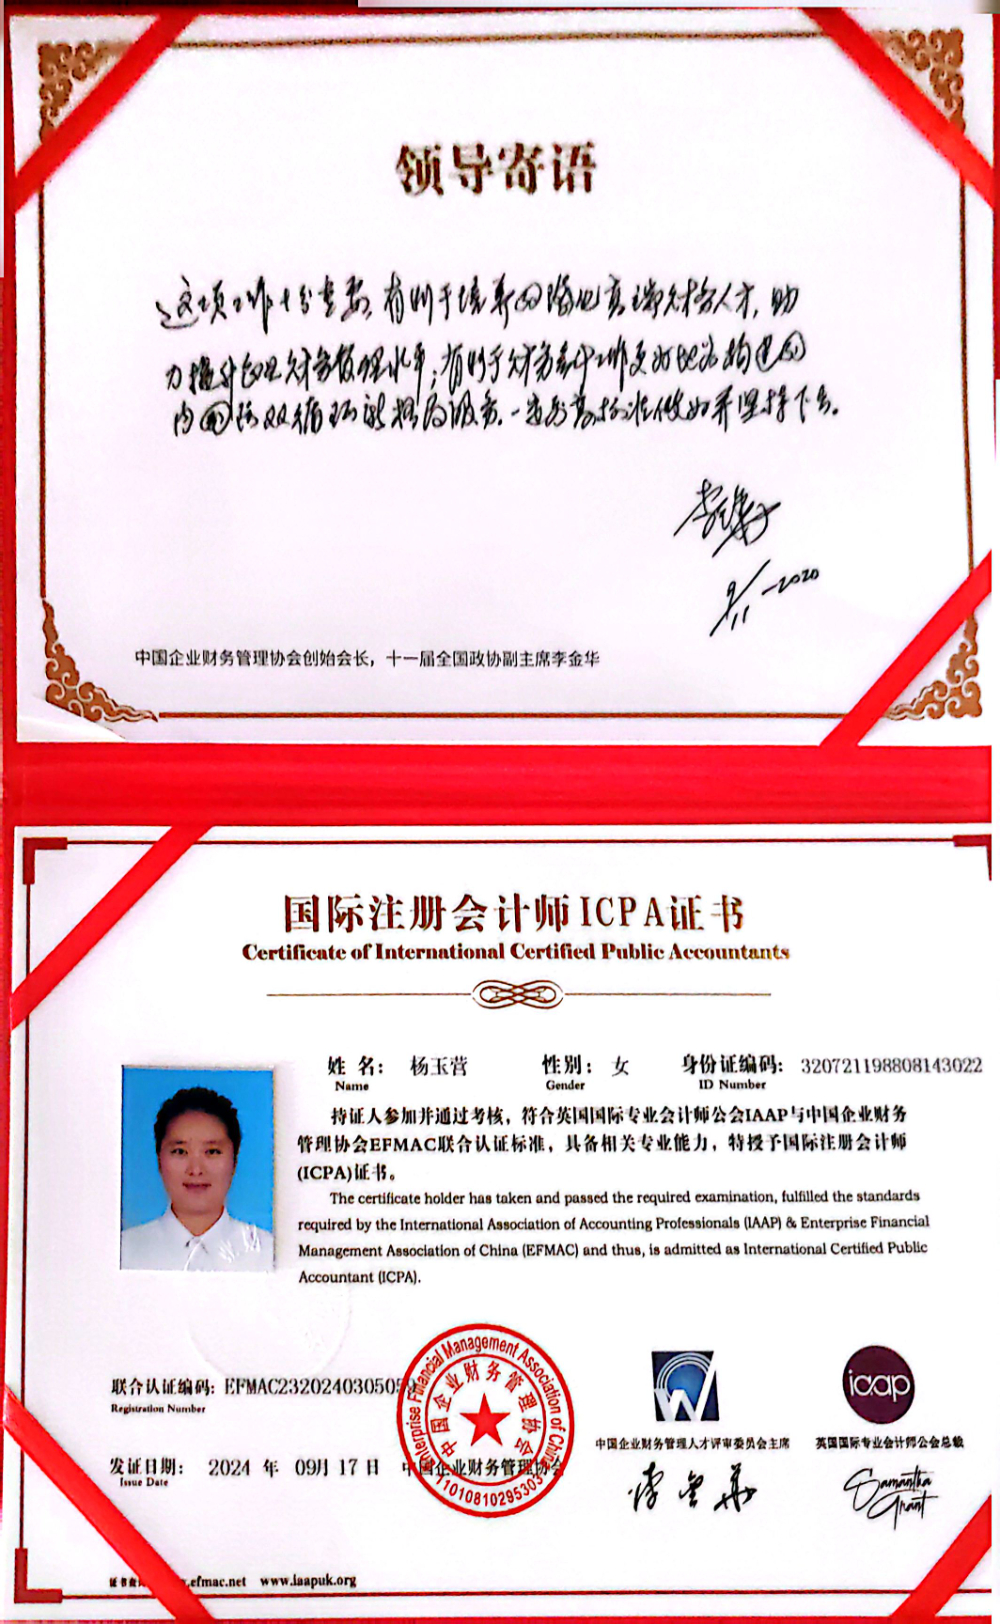 领导寄语
这项工作十分重要，有利于培养国际化高端财务人才，助
力提升企业财务管理水平；有利于财务会计工作更好地为构建国
内国际双循环新格局服务。一定要高标准做好并坚持下去。
李金华
9/11-2020
中国企业财务管理协会创始会长，十一届全国政协副主席李金华
国际注册会计师ICPA证书
Certificate of International Certified Public Accountants
姓 名： 杨玉营 性别： 女 身份证编码: 320721198808143022
Name Gender ID Number
持证人参加并通过考核，符合英国国际专业会计师公会IAAP与中国企业财务
管理协会EFMAC联合认证标准，具备相关专业能力，特授予国际注册会计师
(ICPA)证书。
The certificate holder has taken and passed the required examination, fulfilled the standards
required by the International Association of Accounting Professionals (IAAP) & Enterprise Financial
Management Association of China (EFMAC) and thus, is admitted as International Certified Public
Accountant (ICPA).
Enterprise Financial Management Association of China
中国企业财务管理协会
1101081029530
iaap
联合认证编码: EFMAC232024030505
Registration Number
中国企业财务管理人才评审委员会主席 英国国际专业会计师公会总裁
发证日期： 2024 年 09月 17 日 中国企业财务管理协会
Issue Date
李金华 Samantha Grant
证书查 .efmac.net www.iaapuk.org